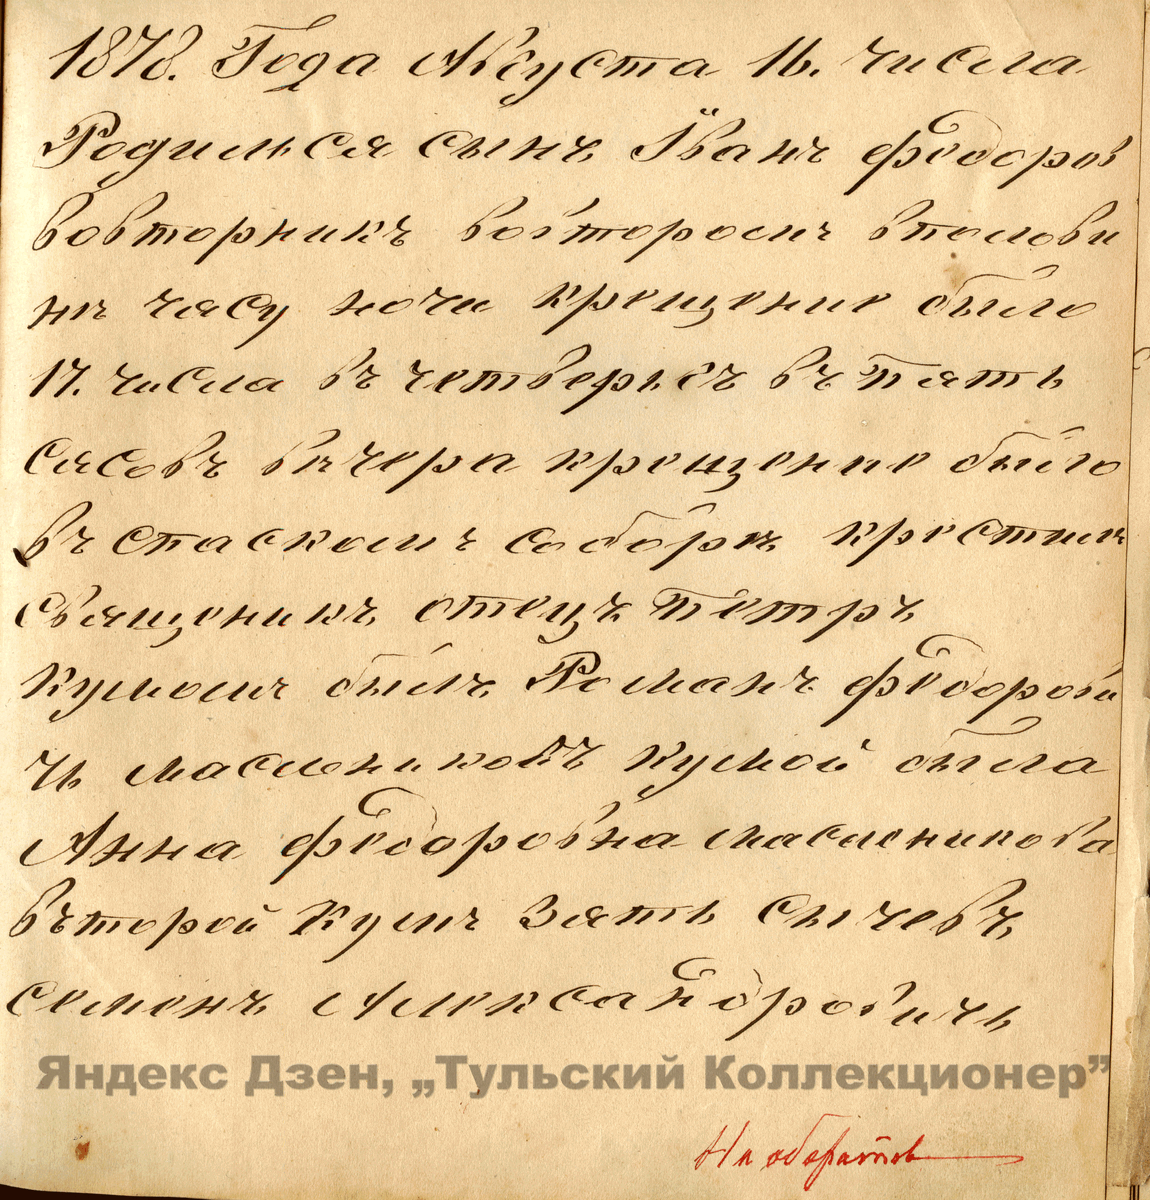 1878. Года Августа 16. числа
Родилься сынъ Іванъ Федоров
вовторникъ вовторомъ вполови
нѣ часу ночи крещение было
17. числа въ четверьгъ въ пять
сясовъ вѣчера крещение было
въ спаскомъ соборѣ крестилъ
священикъ отецъ Петръ
Кумомъ былъ Романъ Федорови
чь маслениковъ кумой была
Анна Федоровна масленикова
въторой Кумъ Зять сычевъ
семенъ Александровичь
Яндекс Дзен, „Тульский Коллекционер”
На оборотѣ